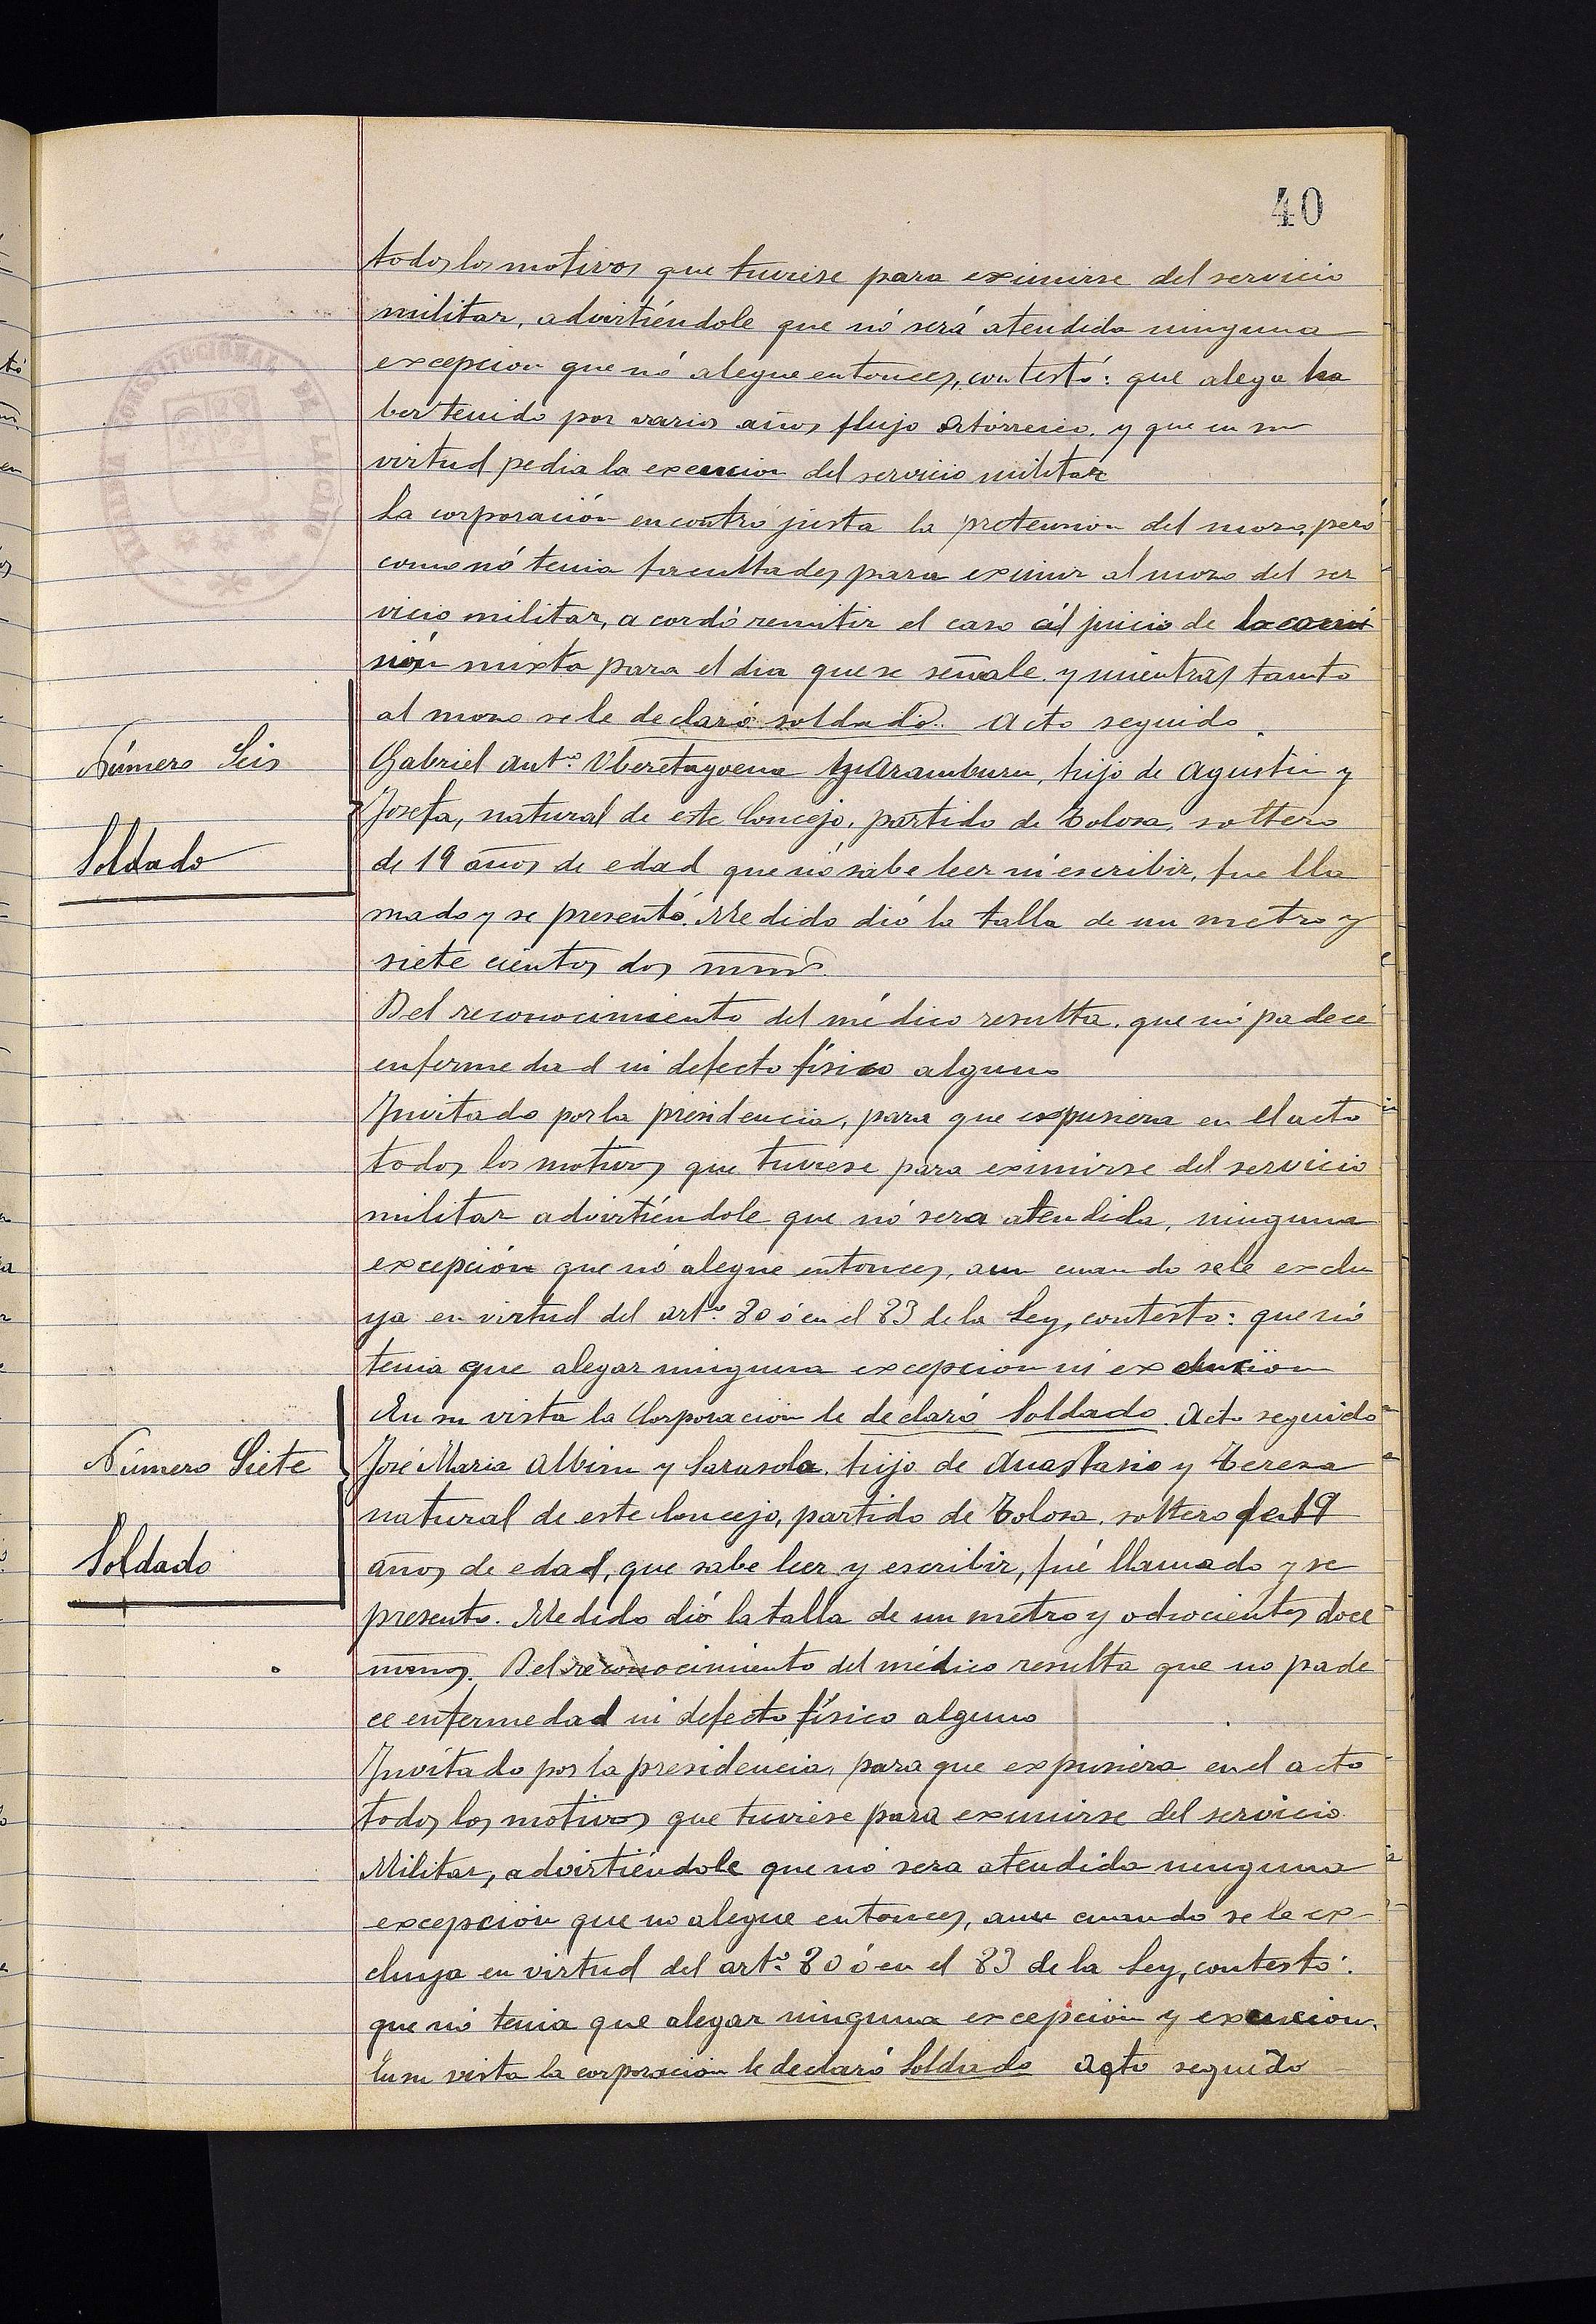 40
todos los motivos que tuviese para eximirse del servicio
militar, advirtiéndole que nó será atendida ninguna
excepcion que nó alegue entonces, contestó: que alega ha
ber tenido por varios años flujo otórreico, y que en su
virtud pedia la exención del servicio militar
La corporación encontró justa la pretension del mozo, peró
como nó tenia facultades para eximir al mozo del ser
vicio militar, acordó remitir el caso al juicio de la comi
sión mixta para el dia que se señale y mientras tanto
al mozo se le declaró soldado. Acto seguido
Número Seis
Gabriel Antº. Uberetagoena Aramburu, hijo de Agustin y
Josefa, natural de este Concejo, partido de Tolosa, soltero
Soldado
de 19 años de edad que nó sabe leer ni escribir, fue lla
mado y se presentó. Medido dió la talla de un metro y
siete cientos dos mms.
Del reconocimiento del médico resulta, que nó padece
enfermedad ni defecto físico alguno
Invitado por la presidencia, para que expusiera en el acto
todos los motivos que tuviese para eximirse del servicio
militar advirtiéndole que nó sera atendida, ninguna
excepción que nó alegue entonces, aun cuando se le exclu
ya en virtud del artº. 80 ó en el 83 de la Ley, contesto: que nó
tenia que alegar ninguna excepcion ni exclusion
En su vista la Corporacion le declaró Soldado. Acto seguido
Número Siete
José Maria Albisu y Sarasola, hijo de Anastasio y Teresa
natural de este Concejo, partido de Tolosa, soltero de 19
Soldado
años de edad, que sabe leer y escribir, fué llamado y se
presento. Medido dió la talla de un metro y ochocientos doce
mms. Del reconocimiento del médico resulta que no pade
ce enfermedad ni defecto físico alguno
Invitado por la presidencia, para que expusiera en el acto
todos los motivos que tuviese para eximirse del servicio
Militar, advirtiéndole que nó sera atendida ninguna
excepción que no alegue entonces, aun cuando se le ex
cluya en virtud del artº. 80 ó en el 83 de la Ley, contestó:
que nó tenia que alegar ninguna excepción y exencion.
En su vista la corporación le declaró Soldado Acto seguido